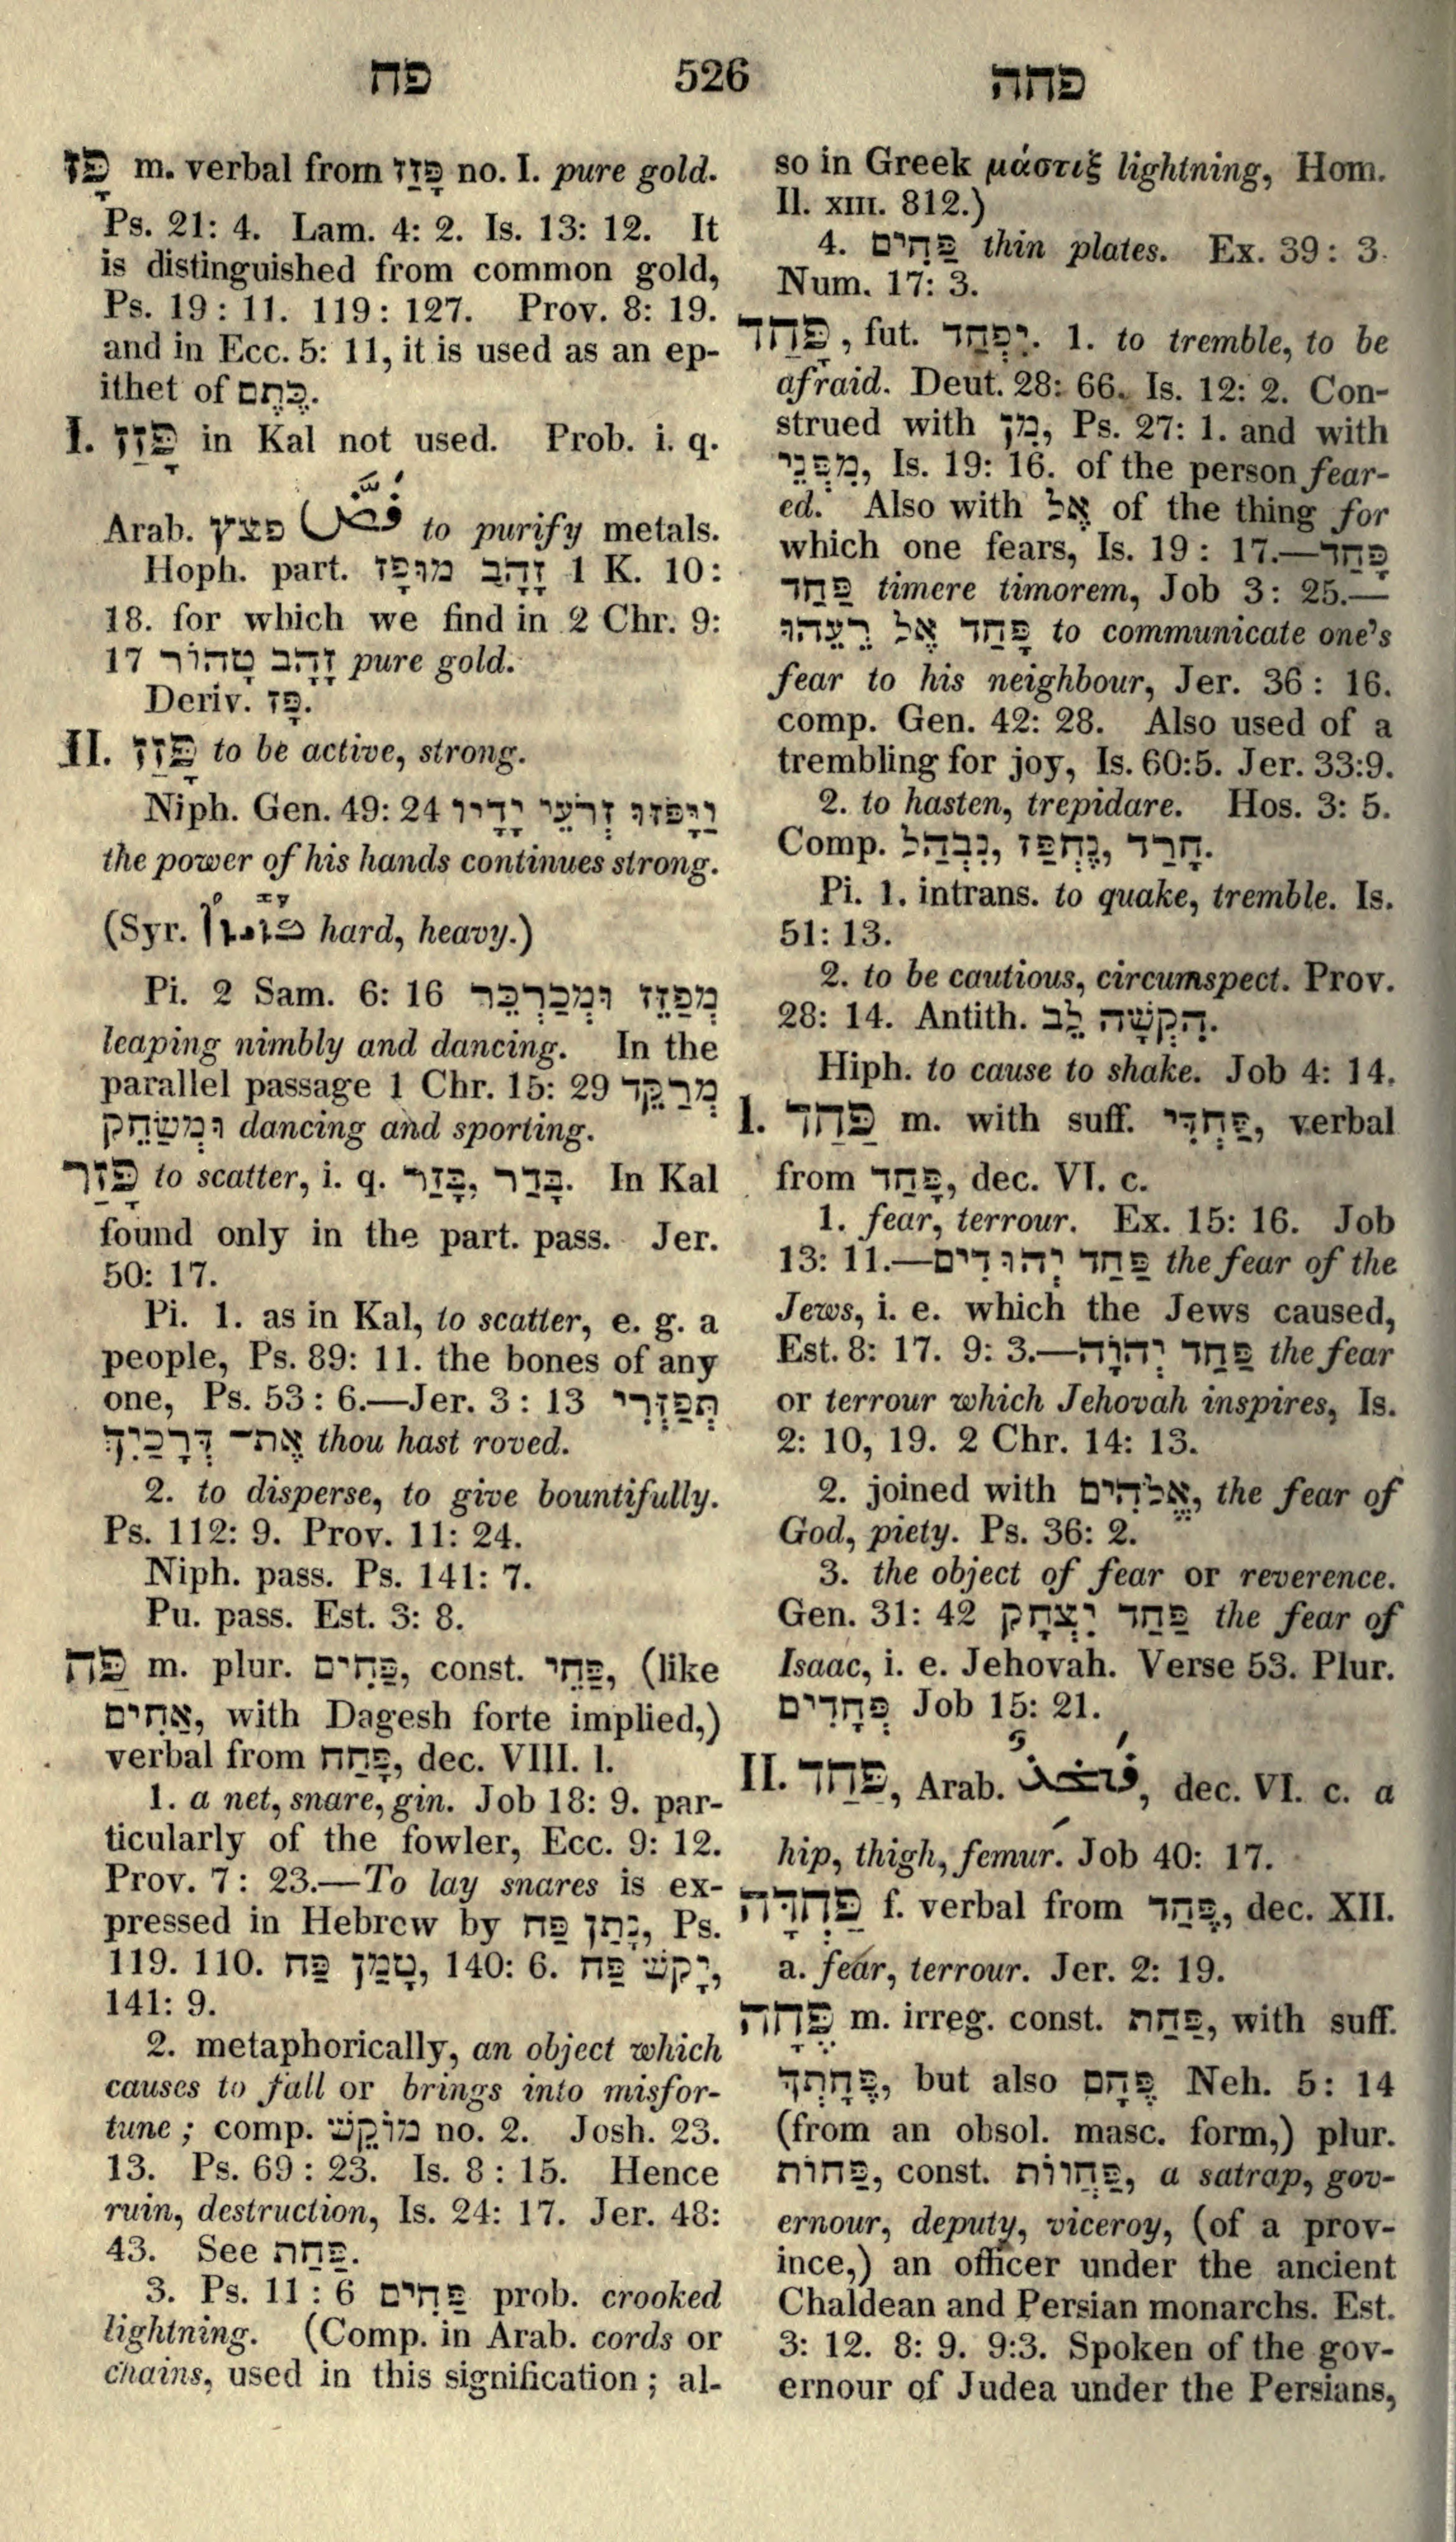 פח 526 פחה
פָּז m. verbal from פָּזַז no. I. pure gold.
Ps. 21: 4. Lam. 4: 2. Is. 13: 12. It
is distinguished from common gold,
Ps. 19: 11. 119: 127. Prov. 8: 19.
and in Ecc. 5: 11, it is used as an ep-
ithet of כֶּתֶם.
I. פָּזַז in Kal not used. Prob. i. q.
Arab. فَضَّ פצץ to purify metals.
Hoph. part. זָהָב מוּפָז 1 K. 10:
18. for which we find in 2 Chr. 9:
17 זָהָב טָהוֹר pure gold.
Deriv. פָּז.
II. פָּזַז to be active, strong.
Niph. Gen. 49: 24 וַיָּפֹזּוּ זְרֹעֵי יָדָיו
the power of his hands continues strong.
(Syr. hard, heavy.)
Pi. 2 Sam. 6: 16 מְפַזֵּז וּמְכַרְכֵּר
leaping nimbly and dancing. In the
parallel passage 1 Chr. 15: 29 מְרַקֵּד
וּמְשַׂחֵק dancing and sporting.
פָּזַר to scatter, i. q. בָּזַר, בָּדַר. In Kal
found only in the part. pass. Jer.
50: 17.
Pi. 1. as in Kal, to scatter, e. g. a
people, Ps. 89: 11. the bones of any
one, Ps. 53: 6.—Jer. 3: 13 תְּפַזְּרִי
אֶת־ דְּרָכַיִךְ thou hast roved.
2. to disperse, to give bountifully.
Ps. 112: 9. Prov. 11: 24.
Niph. pass. Ps. 141: 7.
Pu. pass. Est. 3: 8.
פַּח m. plur. פַּחִים, const. פַּחֵי, (like
אַחִים, with Dagesh forte implied,)
verbal from פָּחַח, dec. VIII. l.
1. a net, snare, gin. Job 18: 9. par-
ticularly of the fowler, Ecc. 9: 12.
Prov. 7: 23.—To lay snares is ex-
pressed in Hebrew by נָתַן פַּח, Ps.
119. 110. טָמַן פַּח, 140: 6. יָקֹשׁ פַּח,
141: 9.
2. metaphorically, an object which
causes to fall or brings into misfor-
tune; comp. מוֹקֵשׁ no. 2. Josh. 23.
13. Ps. 69: 23. Is. 8: 15. Hence
ruin, destruction, Is. 24: 17. Jer. 48:
43. See פַּחַת.
3. Ps. 11: 6 פַּחִים prob. crooked
lightning. (Comp. in Arab. cords or
chains, used in this signification; al-
so in Greek μάστιξ lightning, Hom.
Il. XIII. 812.)
4. פַּחִים thin plates. Ex. 39: 3.
Num. 17: 3.
פָּחַד, fut. יִפְחַד. 1. to tremble, to be
afraid. Deut. 28: 66. Is. 12: 2. Con-
strued with מִן, Ps. 27: 1. and with
מִפְּנֵי, Is. 19: 16. of the person fear-
ed. Also with אֶל of the thing for
which one fears, Is. 19: 17.—פָּחַד
פַּחַד timere timorem, Job 3: 25.—
פָּחַד אֶל רֵעֵהוּ to communicate one's
fear to his neighbour, Jer. 36: 16.
comp. Gen. 42: 28. Also used of a
trembling for joy, Is. 60:5. Jer. 33:9.
2. to hasten, trepidare. Hos. 3: 5.
Comp. חָרַד, נֶחְפַּז, נִבְהַל.
Pi. 1. intrans. to quake, tremble. Is.
51: 13.
2. to be cautious, circumspect. Prov.
28: 14. Antith. הִקְשָׁה לֵב.
Hiph. to cause to shake. Job 4: 14.
I. פַּחַד m. with suff. פַּחְדִּי, verbal
from פָּחַד, dec. VI. c.
1. fear, terrour. Ex. 15: 16. Job
13: 11.—פַּחַד יְהוּדִים the fear of the
Jews, i. e. which the Jews caused,
Est. 8: 17. 9: 3.—פַּחַד יְהוָֹה the fear
or terrour which Jehovah inspires, Is.
2: 10, 19. 2 Chr. 14: 13.
2. joined with אֱלֹהִים, the fear of
God, piety. Ps. 36: 2.
3. the object of fear or reverence.
Gen. 31: 42 פַּחַד יִצְחָק the fear of
Isaac, i. e. Jehovah. Verse 53. Plur.
פְּחָדִים Job 15: 21.
II. פַּחַד, Arab. فَخِذٌ, dec. VI. c. a
hip, thigh, femur. Job 40: 17.
פַּחְדָּה f. verbal from פָּחַד, dec. XII.
a. fear, terrour. Jer. 2: 19.
פֶּחָה m. irreg. const. פַּחַת, with suff.
פֶּחָתְךָ, but also פֶּחָם Neh. 5: 14
(from an obsol. masc. form,) plur.
פַּחוֹת, const. פַּחֲווֹת, a satrap, gov-
ernour, deputy, viceroy, (of a prov-
ince,) an officer under the ancient
Chaldean and Persian monarchs. Est.
3: 12. 8: 9. 9:3. Spoken of the gov-
ernour of Judea under the Persians,